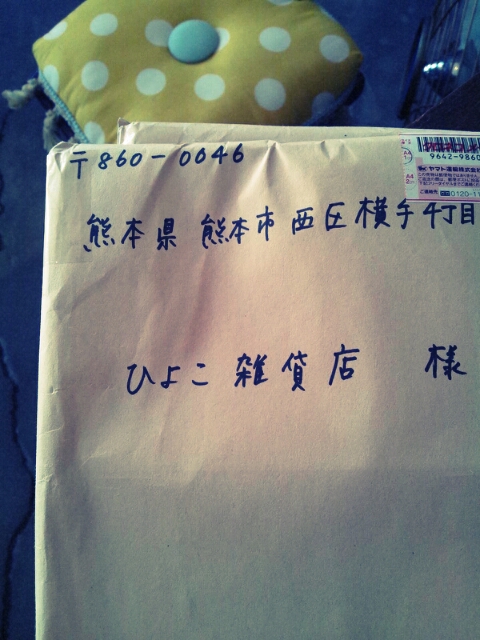 〒860-0046
9642-9860
ヤマト運輸株式会社
0120-11
熊本県 熊本市西区横手4丁目
ひよこ雑貨店 様